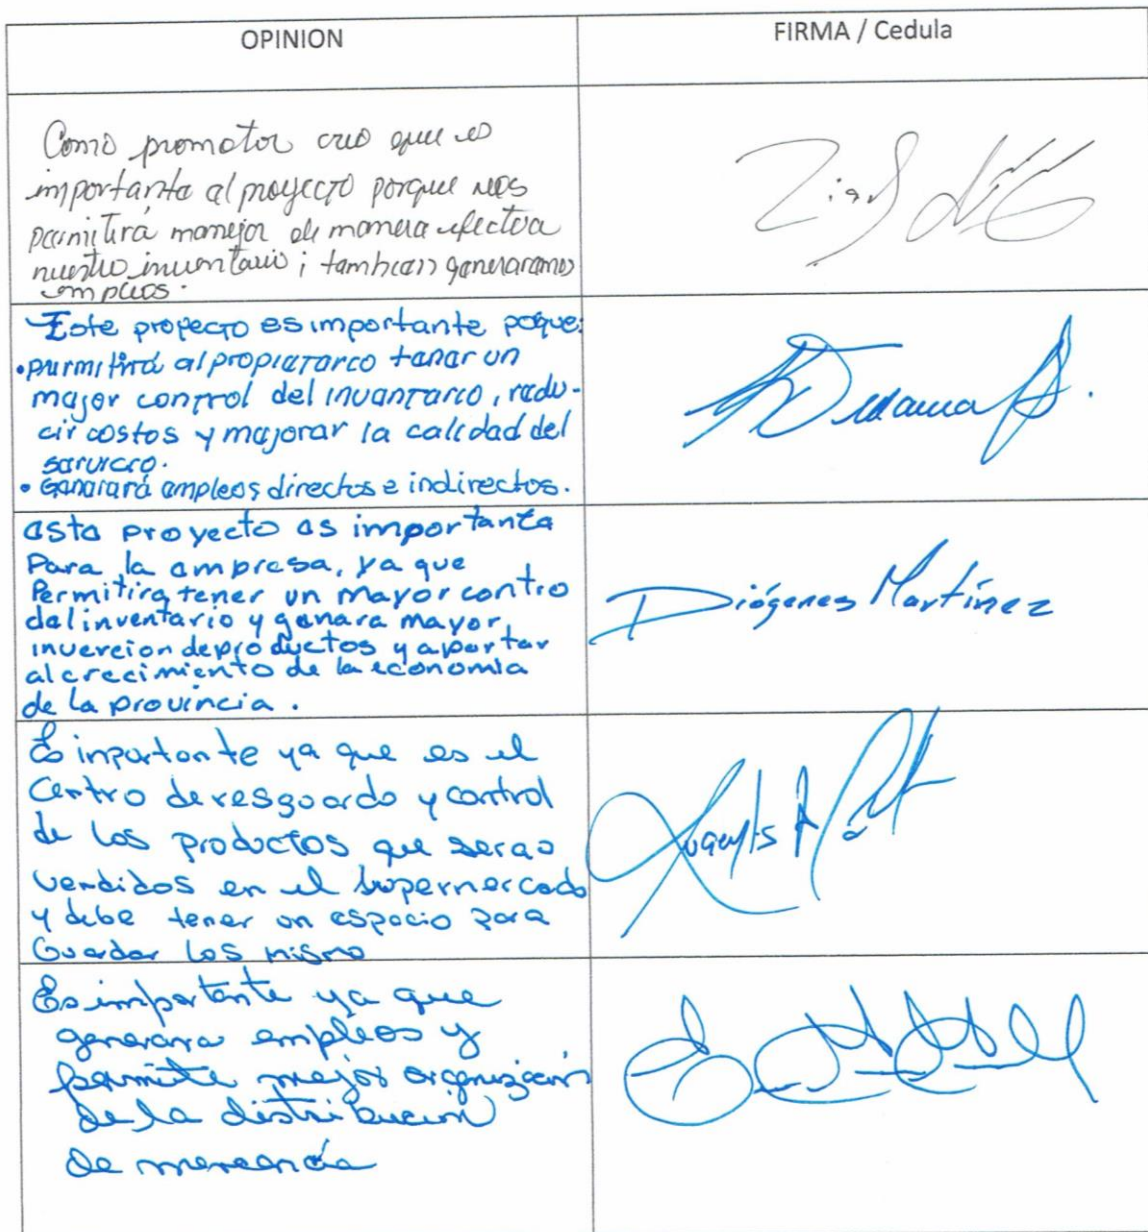 OPINION
FIRMA / Cedula
Como promotor creo que es
importante el proyecto porque nos
permitirá manejar de manera efectiva
nuestro inventario; tambien generaramos
empleos.
Este proyecto es importante poque:
• permitirá al propietario tener un
mayor control del inventario, redu-
cir costos y mejorar la calidad del
servicio.
• Generará empleos directos e indirectos.
este proyecto es importante
Para la empresa, ya que
Permitira tener un mayor contro
del inventario y genara mayor
invercion de productos y aportar
al crecimiento de la economia
de la provincia.
Diógenes Martínez
Es inportante ya que es el
Centro de resguardo y control
de los productos que seran
vendidos en el supermercado
y debe tener un espacio para
Guardar los mismo
Es importante ya que
generara empleos y
permite mejor organización
de la distribucion
de mercancía